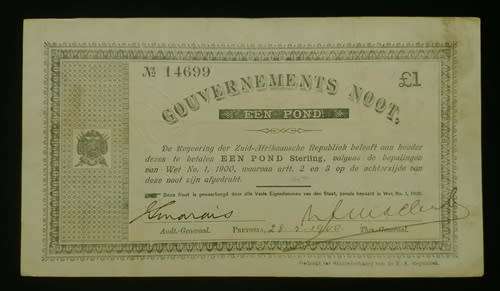 № 14699
£1
GOUVERNEMENTS NOOT,
EEN POND.
De Regeering der Zuid-Afrikaansche Republiek belooft aan houder
dezes te betalen EEN POND Sterling, volgens de bepalingen
van Wet No. 1, 1900, waarvan artt. 2 en 3 op de achterzijde van
deze noot zijn afgedrukt.
Deze Noot is gewaarborgd door alle Vaste Eigendommen van den Staat, zooals bepaald in Wet No. 1, 1900.
Audt.-Generaal.
PRETORIA, 28 5 1900
Thes.-Generaal.